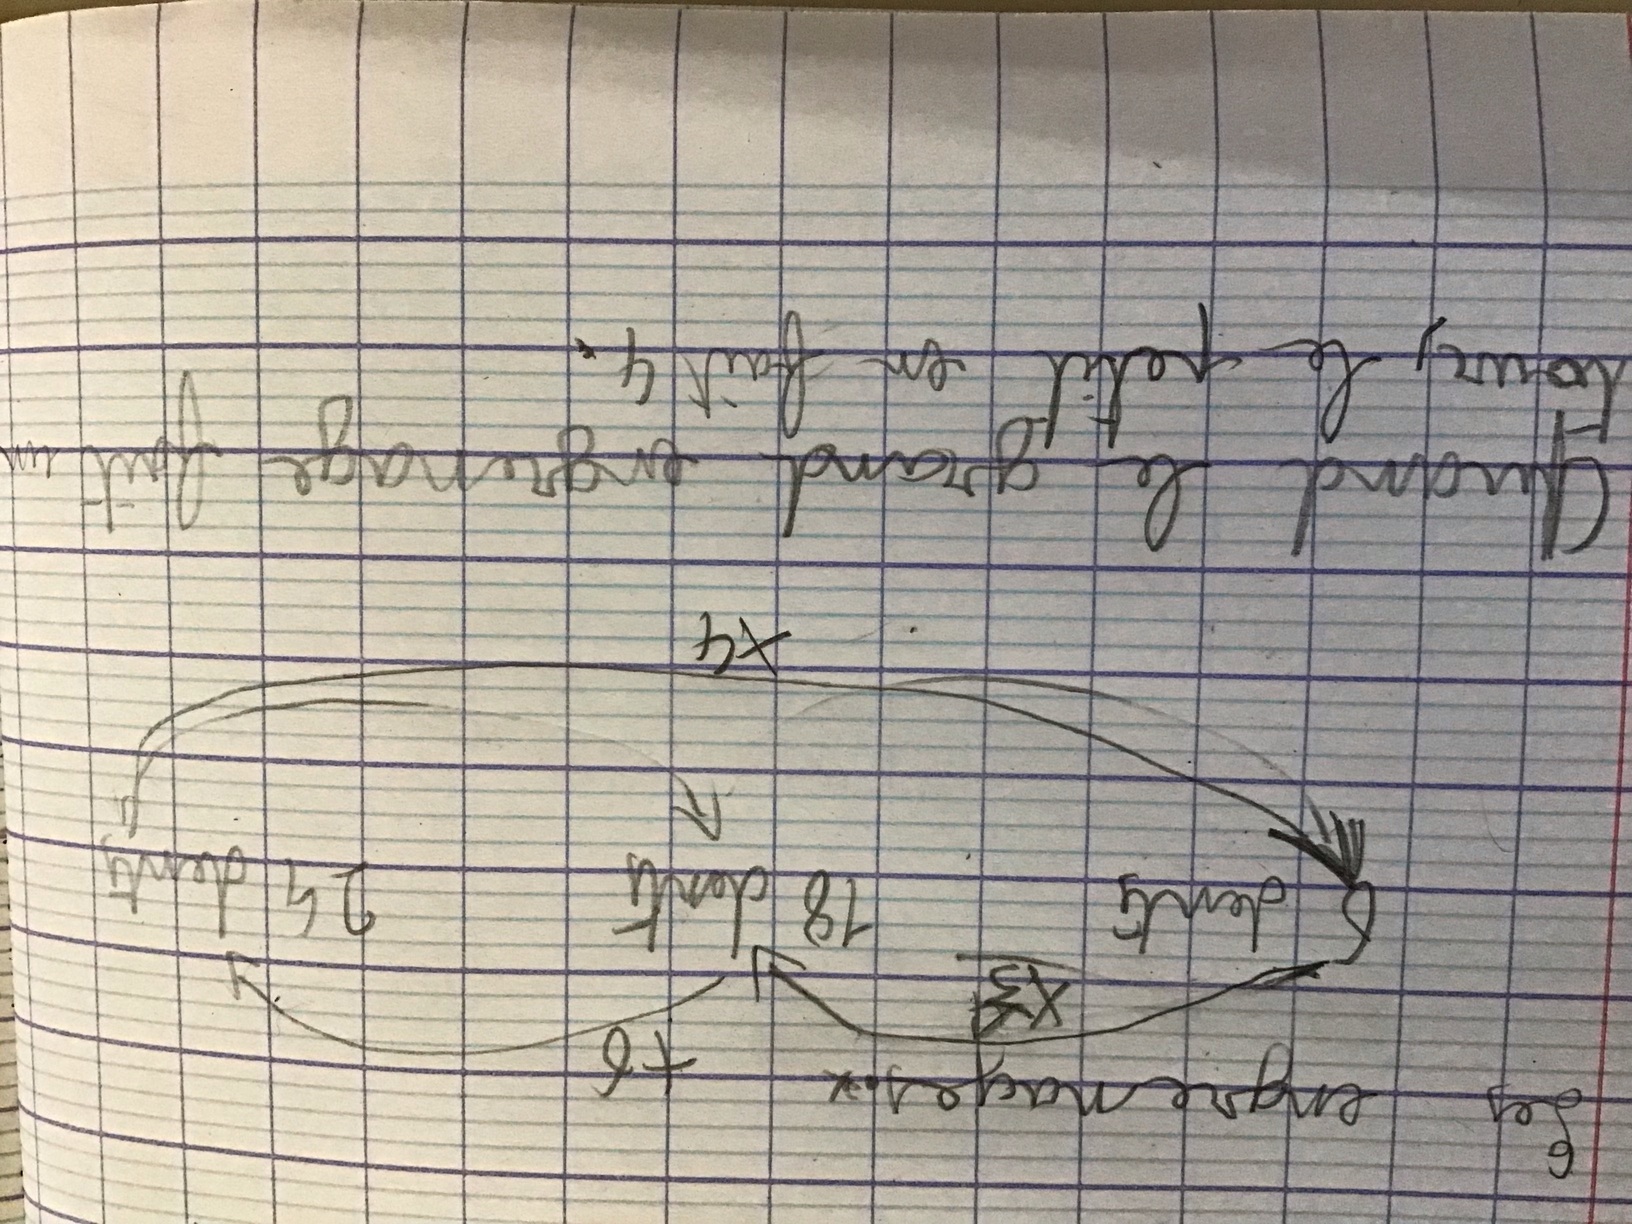 6
Les engrenages.
+6
x3
6 dents 18 dents 24 dents
x4
Quand le grand engrenage fait un
tour, le petit en fait 4.